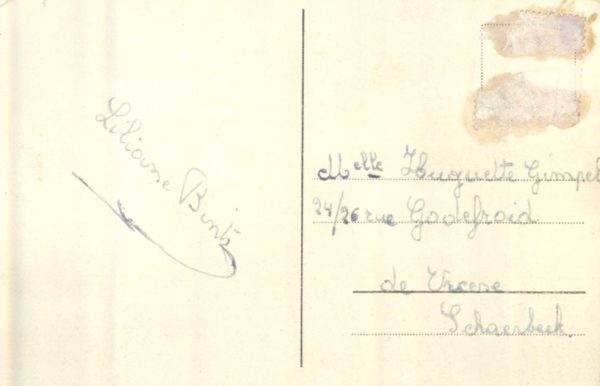 Liliane Binté
Melle Huguette Gimpel
24/26 rue Godefroid
de Vreese
Schaerbeek.